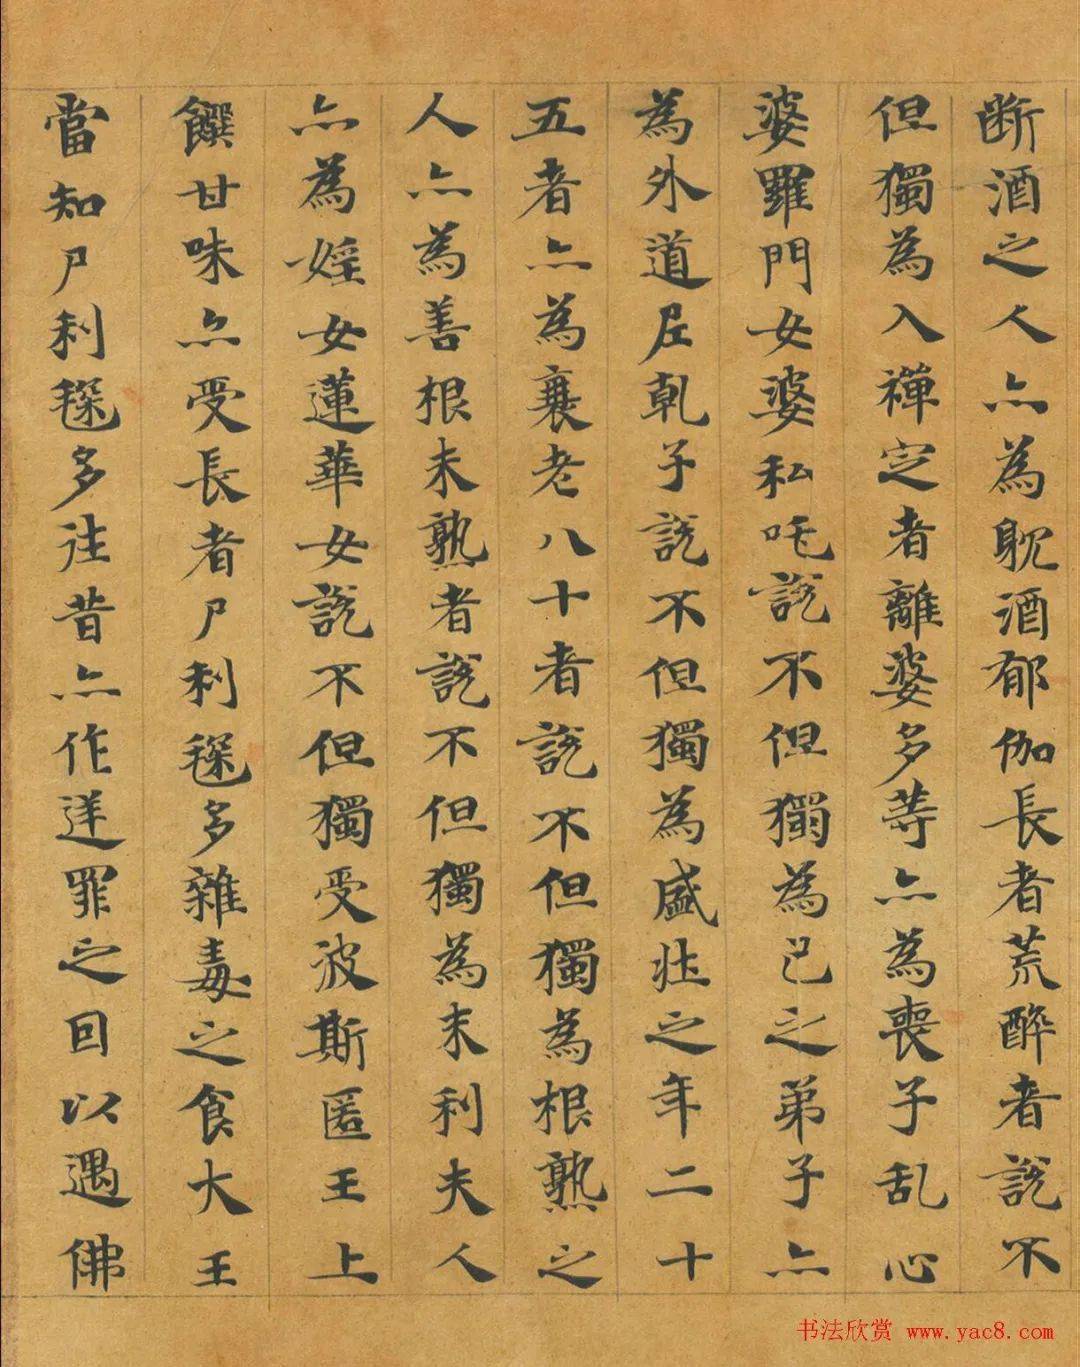 断酒之人亦為躭酒郁伽長者荒醉者說不
但獨為入禪定者離婆多等亦為喪子乱心
婆羅門女婆私吒說不但獨為己之弟子亦
為外道尼乹子說不但獨為盛壮之年二十
五者亦為衰老八十者說不但獨為根熟之
人亦為善根未熟者說不但獨為末利夫人
亦為婬女蓮華女說不但獨受波斯匿王上
饌甘味亦受長者尸利毱多雜毒之食大王
當知尸利毱多往昔亦作逆罪之因以遇佛
书法欣赏 www.yac8.com